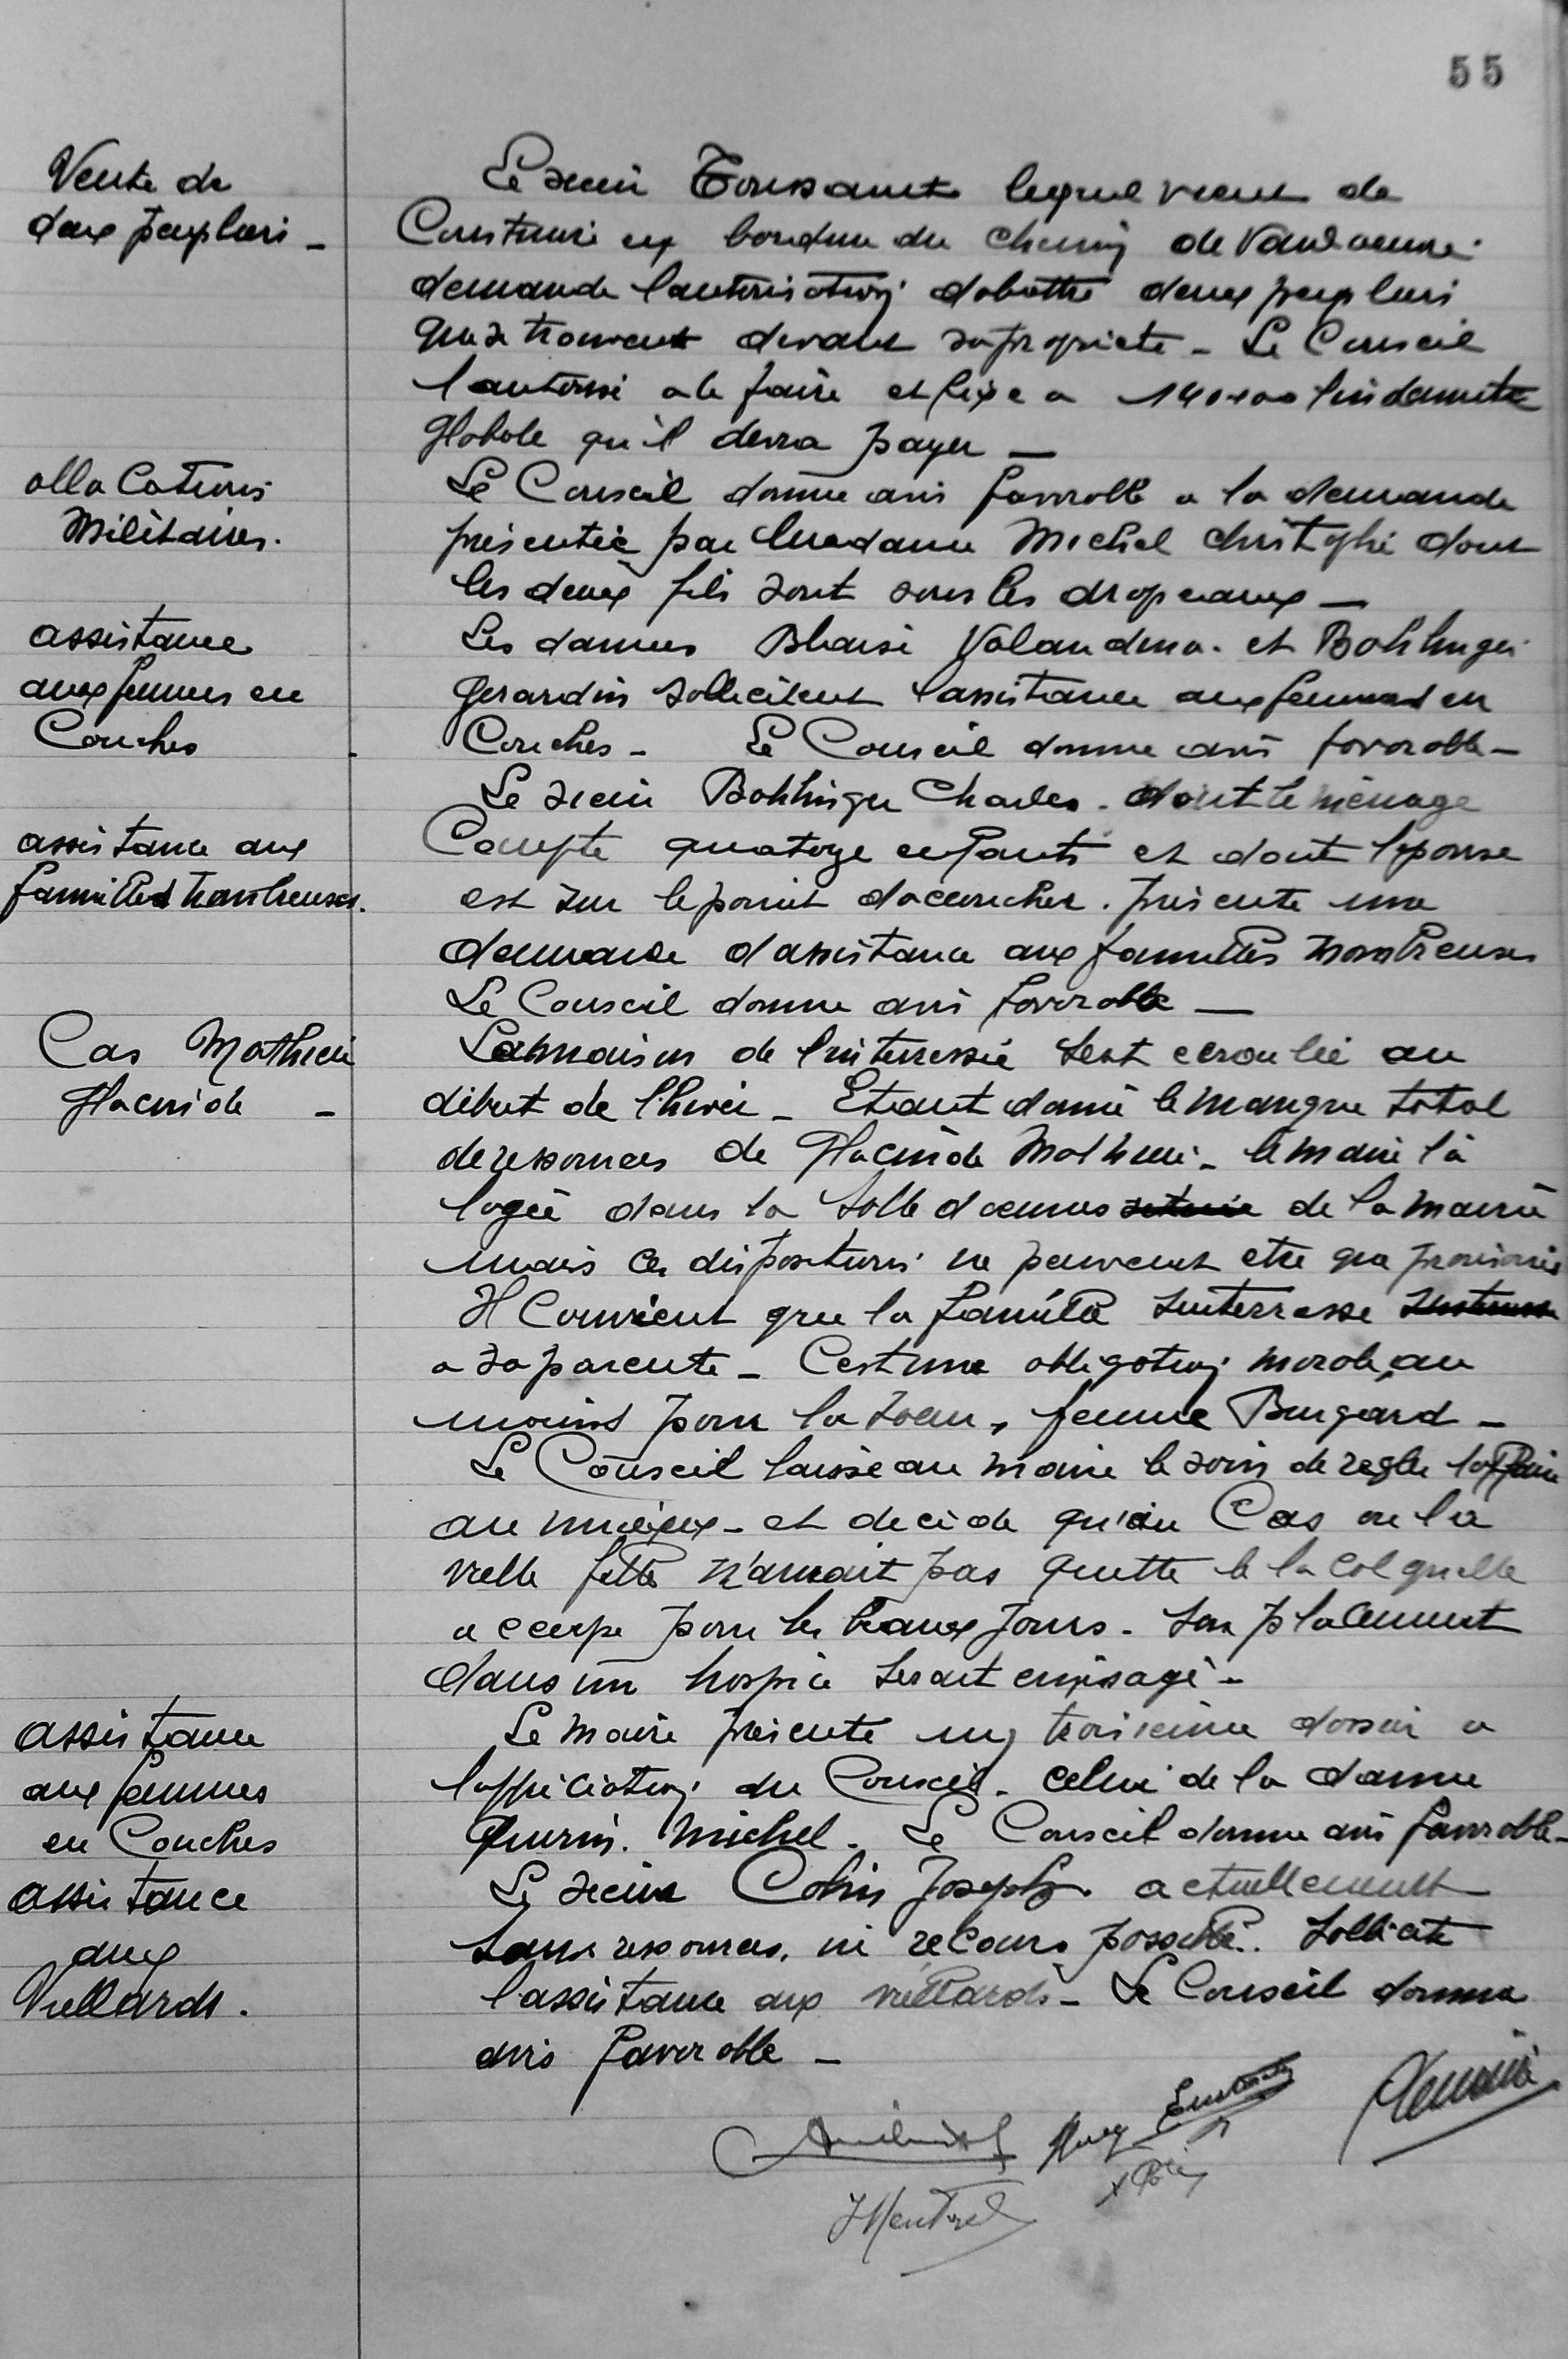 55
Vente de
deux peupliers -
Le sieur Toussaint lequel vient de
Construire en bordure du chemin de
demande l'autorisation d'abattre deux peupliers
qui se trouvent devant sa propriété - Le Conseil
l'autorise a le faire et fixe a l'indemnité
globale qu'il devra payer -
allocations
Militaires.
Le Conseil donne avis favorable a la demande
présentée par Madame Michel Christophe dont
les deux fils sont sous les drapeaux -
assistance
aux femmes en
Couches
Les dames Blaise et Bohlinger
Gerardin sollicitent l'assistance aux femmes en
Couches - Le Conseil donne avis favorable -
assistance aux
familles nombreuses.
Le sieur Bohlinger Charles dont le ménage
Compte quatorze enfants et dont l'epouse
est sur le point d'accoucher. présente une
demande d'assistance aux familles nombreuses
Le Conseil donne avis favorable -
Cas Mathieu
Placide -
La maison de l'interressée s'est ecroulée au
début de l'hiver - Etant donné le manque total
de ressources de Placide Mathieu - le maire l'a
logée dans la salle d'armes de la mairie
mais ces dispositions ne peuvent etre que
Il Convient que la famille s'interresse
a sa parente - C'est une obligation morale, au
moins pour la soeur, femme Burgard -
Le Conseil laisse au maire le soin de regler l'affaire
au mieux - et decide qu'au Cas ou la
vielle fille n'aurait pas quitté le local qu'elle
occupe pour les beaux jours - son placement
dans un hospice serait envisagé -
assistance
aux femmes
en Couches
Le maire présente un troisieme dossier a
l'appréciation du Conseil - Celui de la dame
Michel - Le Conseil donne avis favorable -
assistance
aux
Viellards.
Le sieur Colin Joseph actuellement
sans ressources, ni recours possible. Sollicite
l'assistance aux viellards - Le Conseil donne
avis favorable -